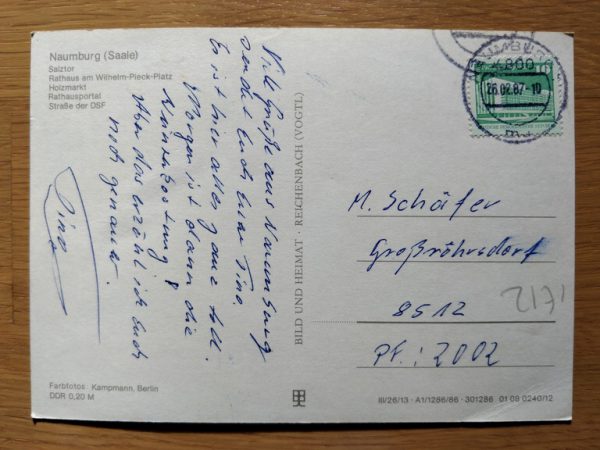 Naumburg (Saale)
Salztor
Rathaus am Wilhelm-Pieck-Platz
Holzmarkt
Rathausportal
Straße der DSF
Viele Grüße aus Naumburg
sendet Euch Eure Tina.
Es ist hier alles ganz toll.
Morgen ist dann die
Aber das erzähl ich Euch
noch genauer.
Tina
Farbfotos: Kampmann, Berlin
DDR 0,20 M
BILD UND HEIMAT · REICHENBACH (VOGTL)
4800
26.02.87-10
10
M. Schäfer
Großröhrsdorf
8512
PF.: 2002
III/26/13 · A1/1286/86 · 301286 01 09 0240/12